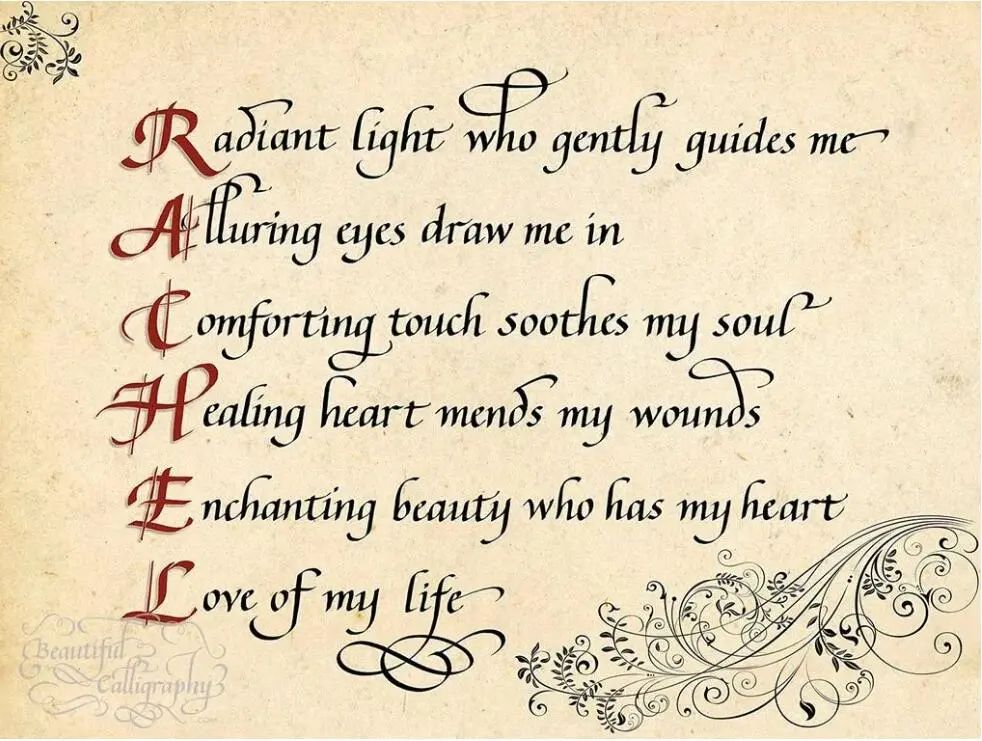 Radiant light who gently guides me
Alluring eyes draw me in
Comforting touch soothes my soul
Healing heart mends my wounds
Enchanting beauty who has my heart
Love of my life
Beautiful
Calligraphy
.com